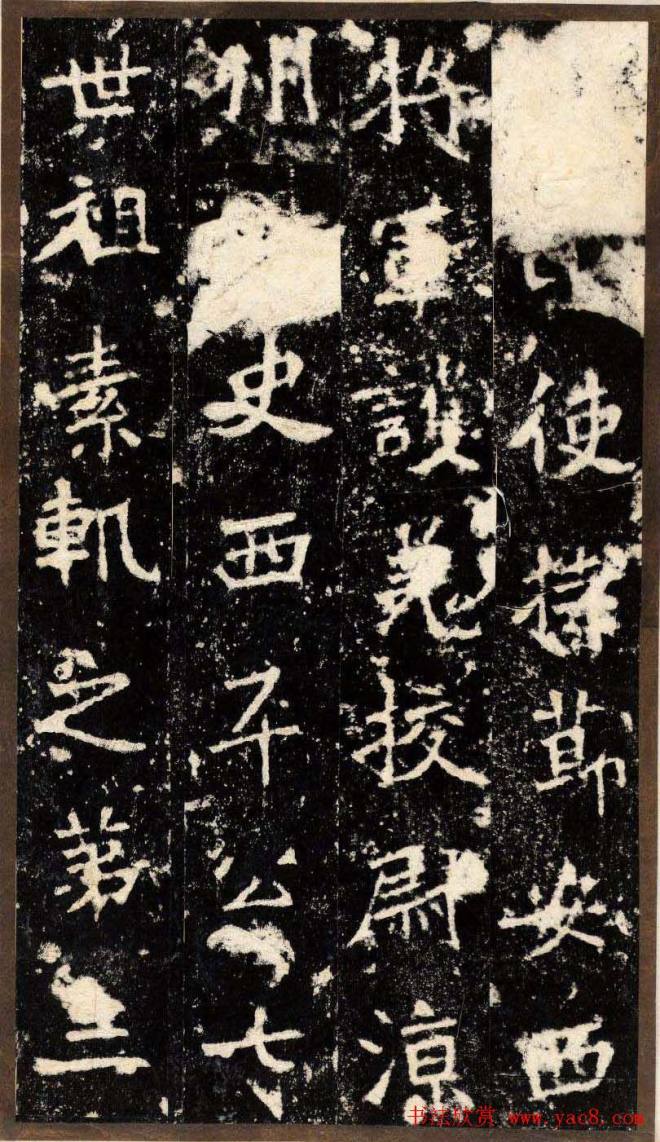 使持節安西
將軍護羌校尉涼
州史西平公七
世祖素軌之第三
书法欣赏 www.yac8.com